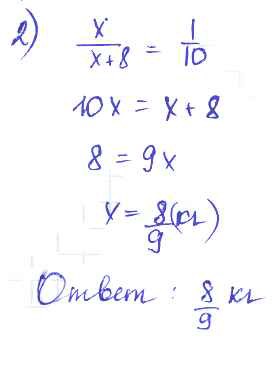 2) x/(x+8) = 1/10
10x = x + 8
8 = 9x
x = 8/9 (кг)
Ответ: 8/9 кг